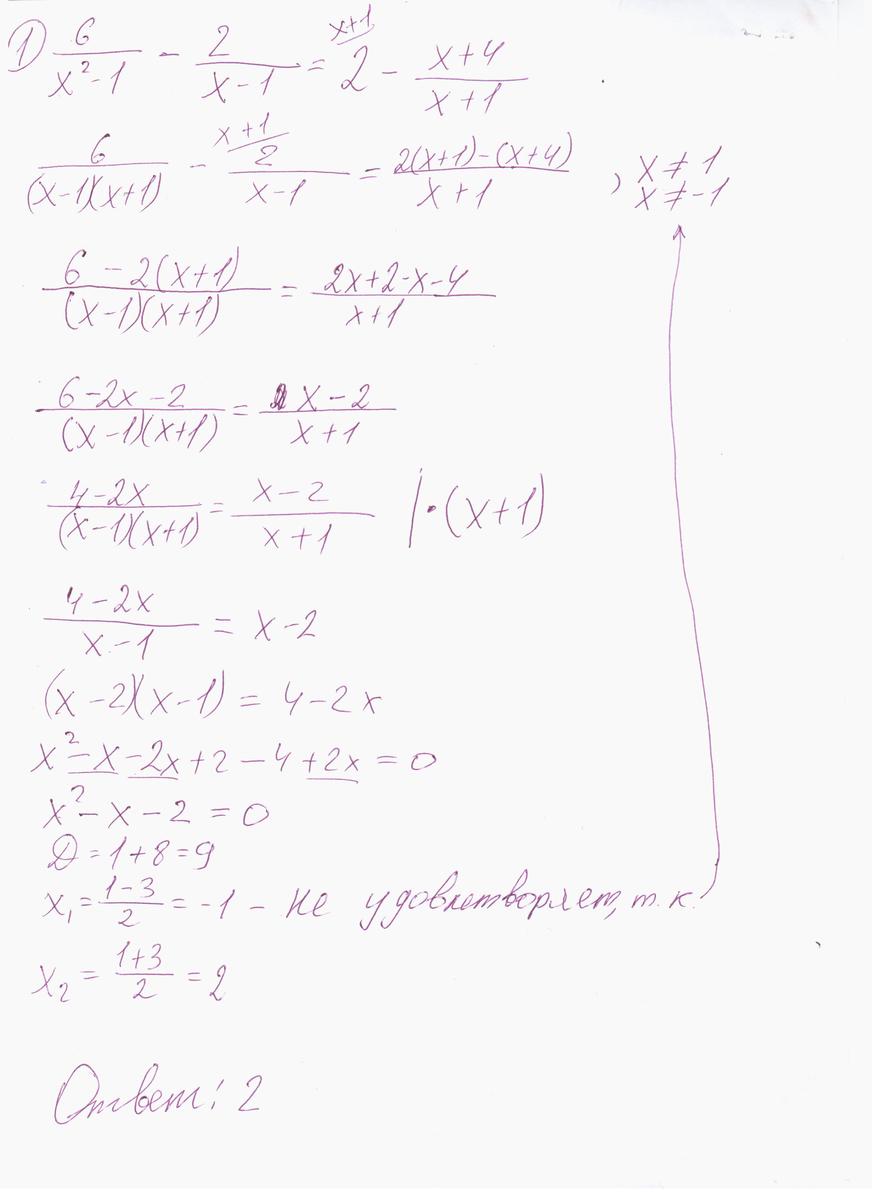 1) 6/(x²-1) - 2/(x-1) = 2^(x+1) - (x+4)/(x+1)
6/((x-1)(x+1)) - 2^(x+1)/(x-1) = (2(x+1)-(x+4))/(x+1) , x≠1 x≠-1
(6-2(x+1))/((x-1)(x+1)) = (2x+2-x-4)/(x+1)
(6-2x-2)/((x-1)(x+1)) = (x-2)/(x+1)
(4-2x)/((x-1)(x+1)) = (x-2)/(x+1) | ·(x+1)
(4-2x)/(x-1) = x-2
(x-2)(x-1) = 4-2x
x²-x-2x+2-4+2x=0
x²-x-2=0
D=1+8=9
x₁=(1-3)/2=-1 - не удовлетворяет, т.к.
x₂=(1+3)/2=2
Ответ: 2